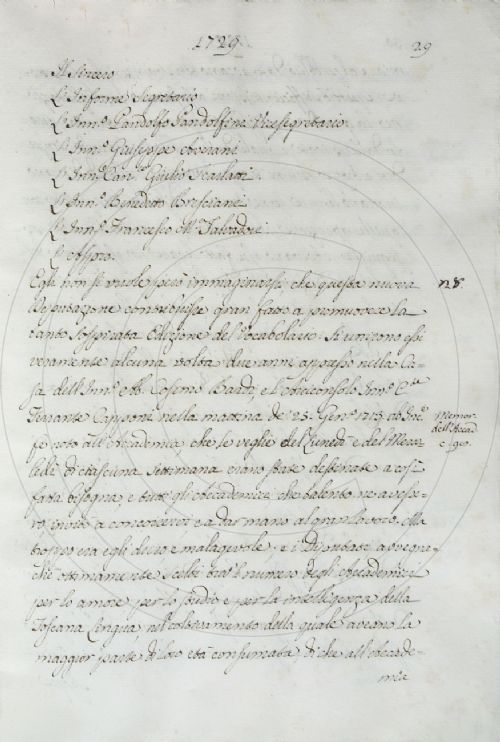 1729. 29
Il Sincero
L'Informe Segretario
L'Inn.º Pandolfo Pandolfini Vicesegretario
L'Inn.º Giuseppe Averani
L'Inn.º Can.º Giulio Scarlatti
L'Inn.º Benedetto Bresciani
L'Inn.º Francesco M.ª Salvadori
L'Ripieno.
Egli non si vuole però immaginarsi, che questa nuova 28.
Deputazione contribuisse gran fatto a promuovere la
tanto sospirata Edizione del Vocabolario. Si unirono essi
veramente alcuna volta due anni appresso nella Ca-
sa dell'Inn.º Ab. Cosimo Bardi; e l'Arciconsolo Inn.º C.te
Ferrante Capponi nella mattina de' 25. Genn.º 1713. ab Inc.e
fe' noto all'Accademia, che le veglie del Lunedì e del Merco- Memor.
ledì di ciascuna settimana erano state destinate a così dell'Accad.
fatta bisogna, e tutti gli Accademici, che talento ne avesse- c. 90.
ro, invitò a concorrervi e a dar mano al gran lavoro. Ma
troppo era egli duro e malagevole; e i Deputati avvegna-
chè ottimamente scelti tra 'l numero degli Accademici
per lo amore, per lo studio e per la intelligenza della
Toscana Lingua, nel coltivamento della quale aveano la
maggior parte di loro età consumata, di che all'Accade-
mia